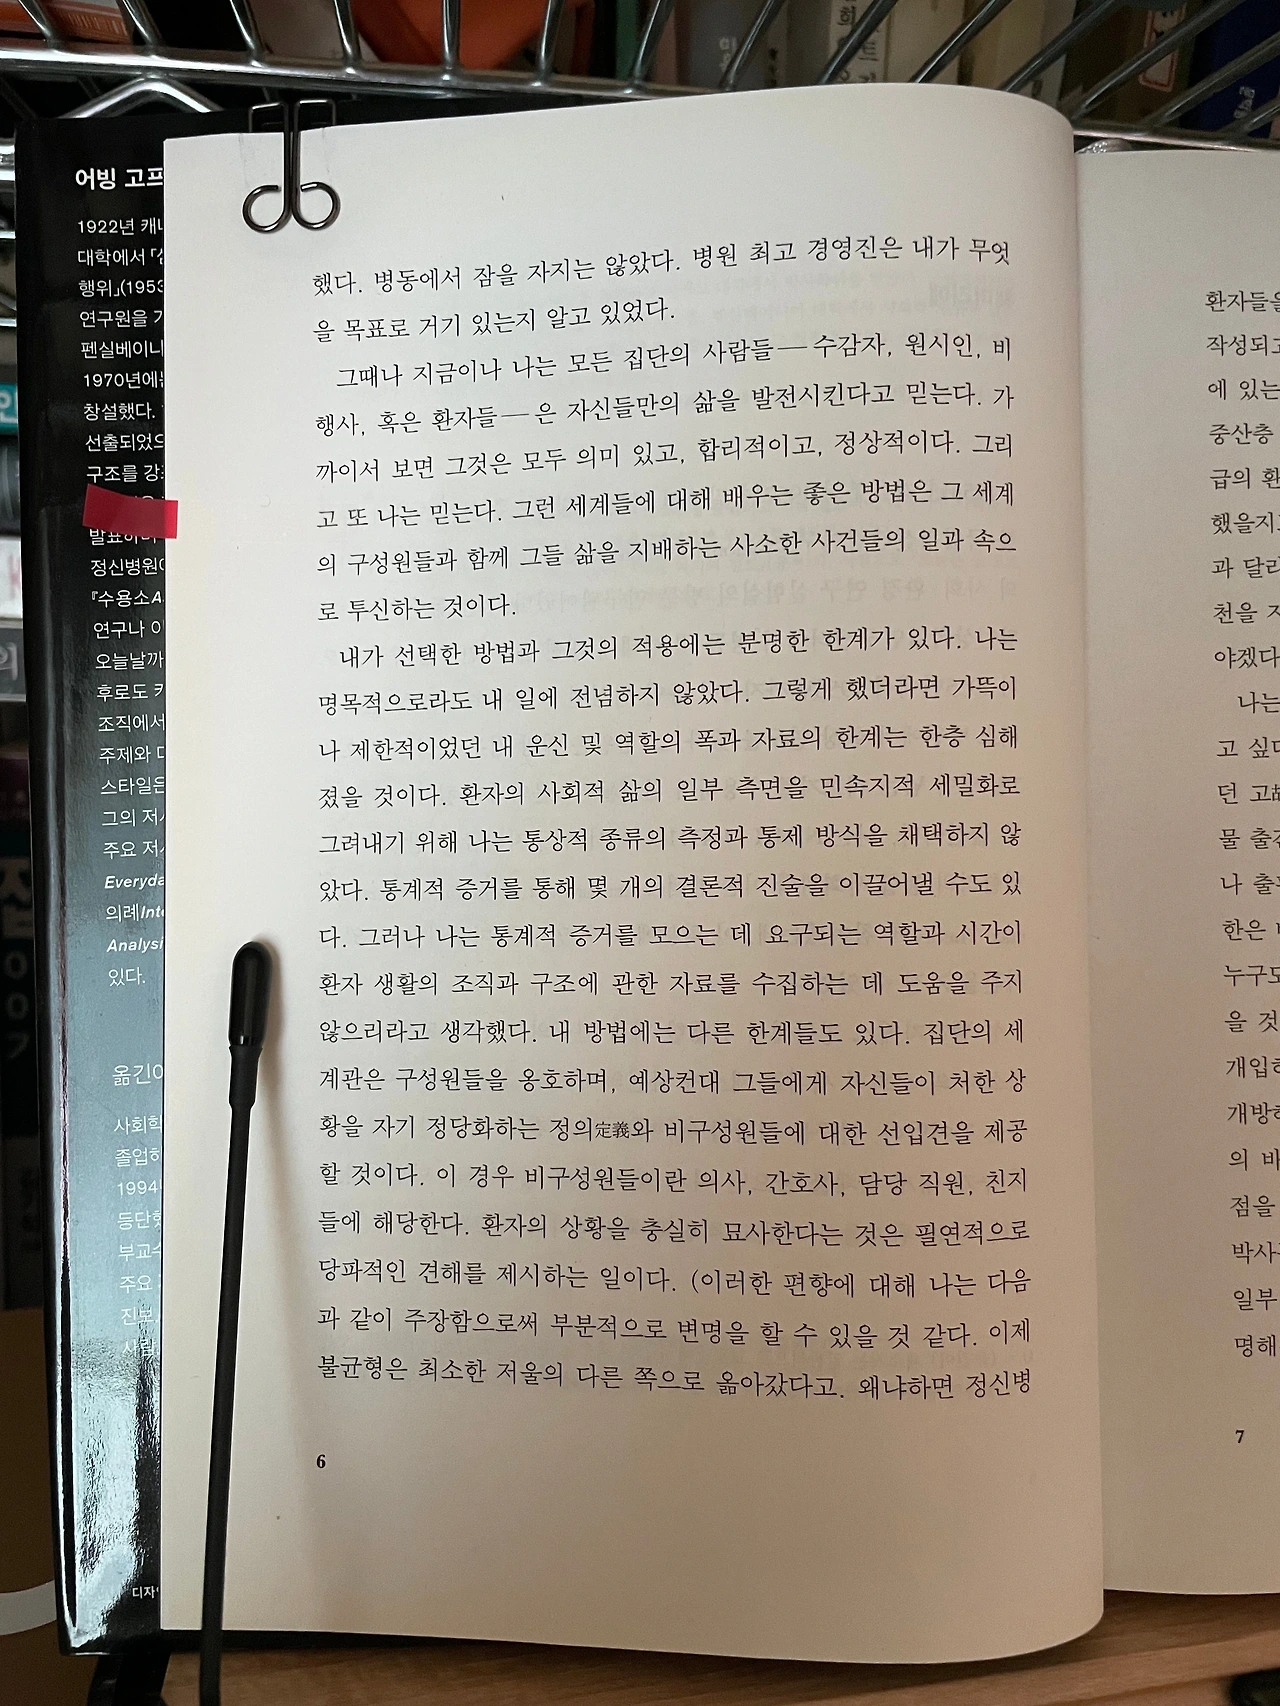 어빙 고프
1922년 캐나
대학에서
행위」(1953
연구원을
펜실베이니
1970년에는
창설했다.
선출되었으
구조를 강조
발표하며
정신병원
『수용소A
연구나 이
오늘날까
후로도
조직에서
주제와
스타일은
그의 저서
주요 저서
Everyda
의례Inte
Analysi
있다.
옮긴이
사회학
졸업하
1994
등단했
부교수
주요
디자인
했다. 병동에서 잠을 자지는 않았다. 병원 최고 경영진은 내가 무엇
을 목표로 거기 있는지 알고 있었다.
그때나 지금이나 나는 모든 집단의 사람들──수감자, 원시인, 비
행사, 혹은 환자들──은 자신들만의 삶을 발전시킨다고 믿는다. 가
까이서 보면 그것은 모두 의미 있고, 합리적이고, 정상적이다. 그리
고 또 나는 믿는다. 그런 세계들에 대해 배우는 좋은 방법은 그 세계
의 구성원들과 함께 그들 삶을 지배하는 사소한 사건들의 일과 속으
로 투신하는 것이다.
내가 선택한 방법과 그것의 적용에는 분명한 한계가 있다. 나는
명목적으로라도 내 일에 전념하지 않았다. 그렇게 했더라면 가뜩이
나 제한적이었던 내 운신 및 역할의 폭과 자료의 한계는 한층 심해
졌을 것이다. 환자의 사회적 삶의 일부 측면을 민속지적 세밀화로
그려내기 위해 나는 통상적 종류의 측정과 통제 방식을 채택하지 않
았다. 통계적 증거를 통해 몇 개의 결론적 진술을 이끌어낼 수도 있
다. 그러나 나는 통계적 증거를 모으는 데 요구되는 역할과 시간이
환자 생활의 조직과 구조에 관한 자료를 수집하는 데 도움을 주지
않으리라고 생각했다. 내 방법에는 다른 한계들도 있다. 집단의 세
계관은 구성원들을 옹호하며, 예상컨대 그들에게 자신들이 처한 상
황을 자기 정당화하는 정의定義와 비구성원들에 대한 선입견을 제공
할 것이다. 이 경우 비구성원들이란 의사, 간호사, 담당 직원, 친지
들에 해당한다. 환자의 상황을 충실히 묘사한다는 것은 필연적으로
당파적인 견해를 제시하는 일이다. (이러한 편향에 대해 나는 다음
과 같이 주장함으로써 부분적으로 변명을 할 수 있을 것 같다. 이제
불균형은 최소한 저울의 다른 쪽으로 옮아갔다고. 왜냐하면 정신병
6
환자들을
작성되고
에 있는
중산층
급의 환
했을지
과 달리
천을 지
야겠다
나는
고 싶다
던 고故
물 출간
나 출
한은
누구도
을 것
개입하
개방하
의 바
점을
박사
일부
명해
7